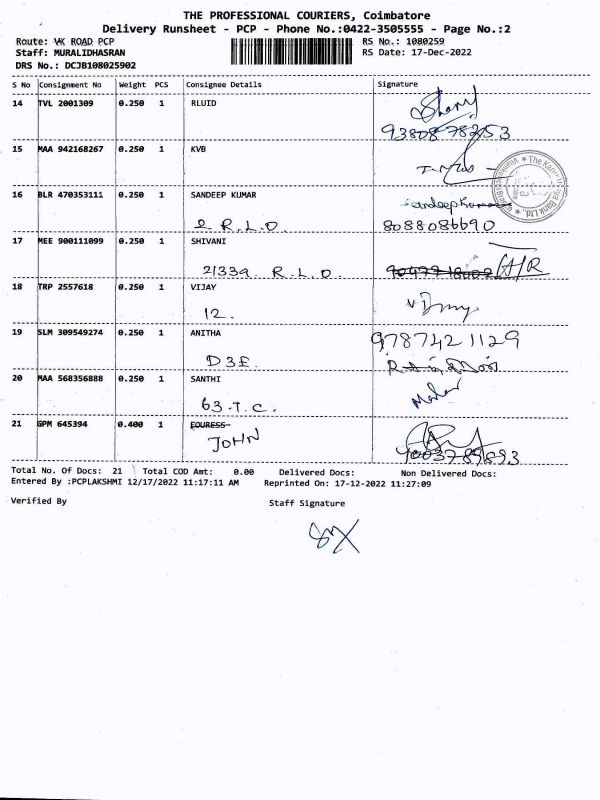 THE PROFESSIONAL COURIERS, Coimbatore
Delivery Runsheet - PCP - Phone No.:0422-3505555 - Page No.:2
Route: VK ROAD PCP
RS No.: 1080259
Staff: MURALIDHASRAN
RS Date: 17-Dec-2022
DRS No.: DCJB108025902
S No Consignment No Weight PCS Consignee Details Signature
14 TVL 2001309 0.250 1 RLUID
15 MAA 942168267 0.250 1 KVB
16 BLR 470353111 0.250 1 SANDEEP KUMAR
2 R.L.O 8088086690
17 MEE 900111099 0.250 1 SHIVANI
21339 R.L.O.
18 TRP 2557618 0.250 1 VIJAY
12.
19 SLM 309549274 0.250 1 ANITHA 9787421129
D3E.
20 MAA 568356888 0.250 1 SANTHI
63.T.C.
21 GPM 645394 0.400 1 FOURESS
JOHN
Total No. Of Docs: 21 Total COD Amt: 0.00 Delivered Docs: Non Delivered Docs:
Entered By :PCPLAKSHMI 12/17/2022 11:17:11 AM Reprinted On: 17-12-2022 11:27:09
Verified By Staff Signature